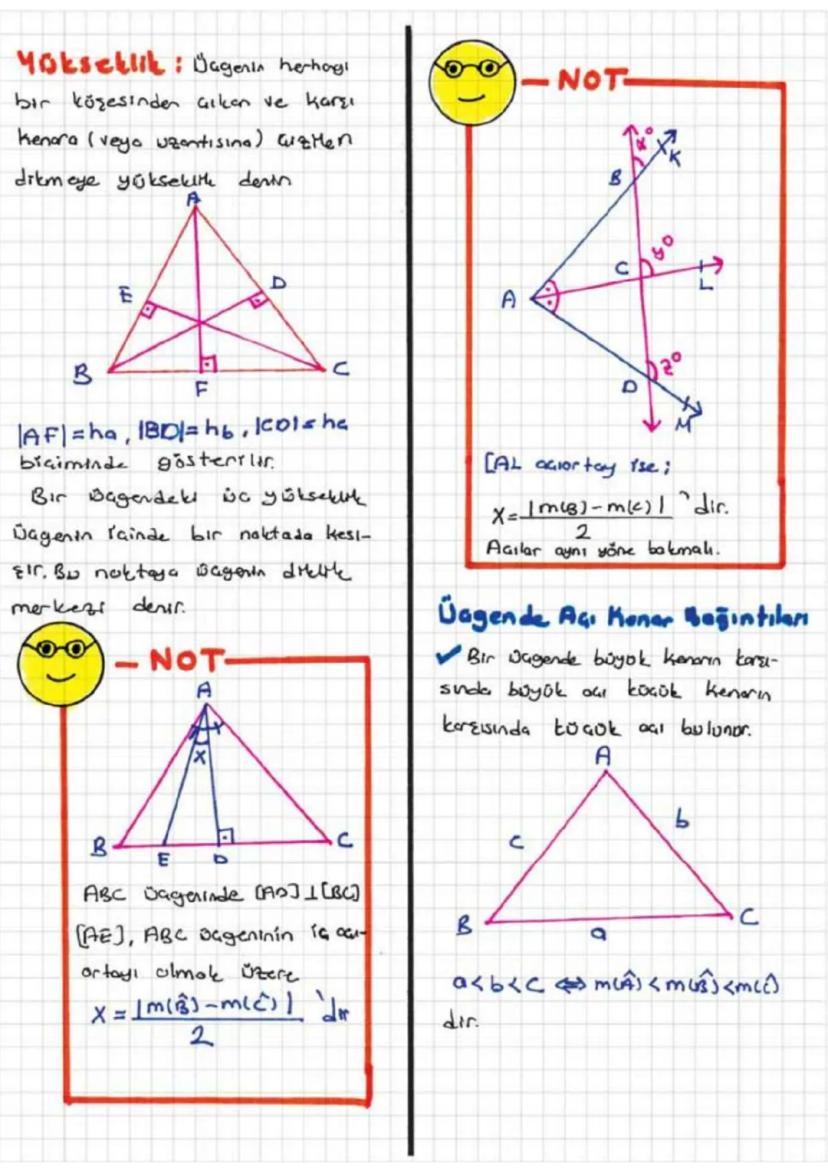 Yükseklik : Üçgenin herhangi
bir köşesinden çıkan ve karşı
kenara (veya uzantısına) çizilen
dikmeye yükseklik denir
A
E
D
B
F
C
|AF|=ha, |BD|=hb, |CD|=ha
biçiminde gösterilir.
Bir üçgendeki üç yükseklik
üçgenin içinde bir noktada kesi-
şir. Bu noktaya üçgenin diklik
merkezi denir.
NOT
A
X
B
E
D
C
ABC üçgeninde [AD]⊥[BC]
[AE], ABC üçgeninin iç açı-
ortayı olmak üzere
X = |m(B̂)-m(Ĉ)| 'dır
2
NOT
x°
K
B
y°
C
L
A
z°
D
M
[AL açıortay ise;
X = |m(B)-m(C)| 'dir.
2
Açılar aynı yöne bakmalı.
Üçgende Açı Kenar Bağıntıları
✓ Bir üçgende büyük kenarın karşı-
sında büyük açı küçük kenarın
karşısında küçük açı bulunur.
A
c
b
B
a
C
a<b<c ⇔ m(Â)<m(B̂)<m(Ĉ)
dir.